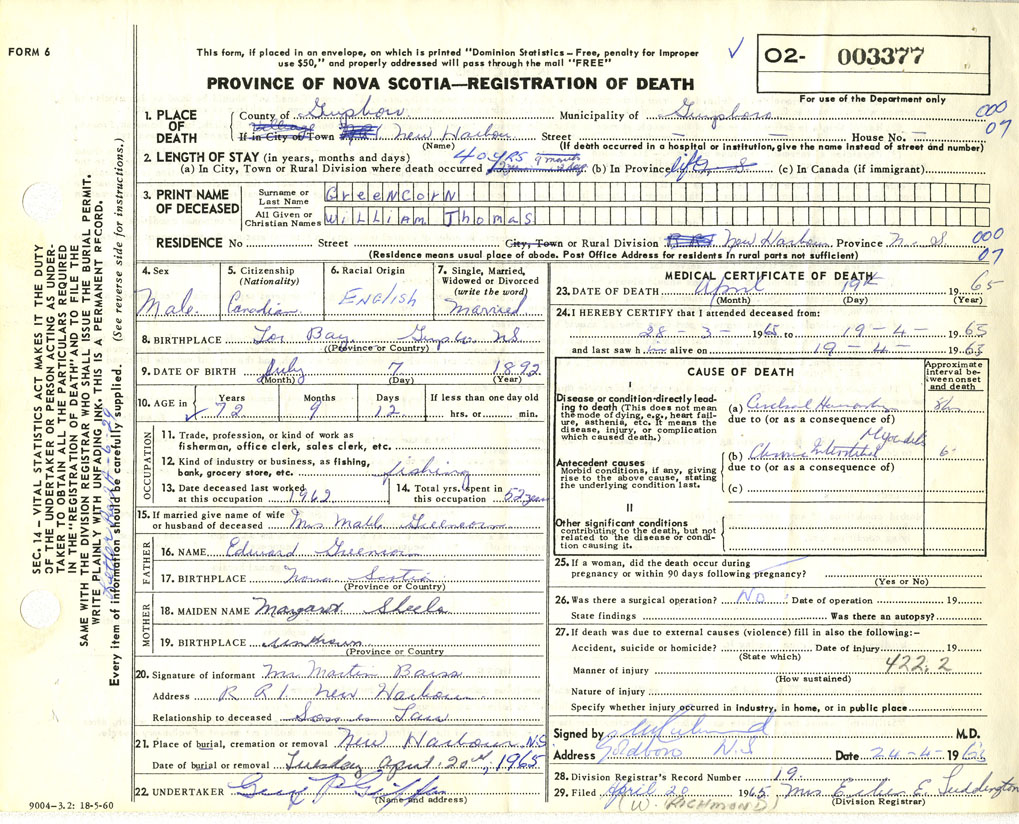 FORM 6
This form, if placed in an envelope, on which is printed "Dominion Statistics – Free, penalty for improper
use $50," and properly addressed will pass through the mail "FREE"
✓
O2- 003377
For use of the Department only
PROVINCE OF NOVA SCOTIA—REGISTRATION OF DEATH
1. PLACE OF DEATH
County of Guysboro Municipality of Guysboro 000
If in City or Town New Harbour Street — House No. — 07
(Name) (If death occurred in a hospital or institution, give the name instead of street and number)
2. LENGTH OF STAY (in years, months and days) 40 YRS 9 months
(a) In City, Town or Rural Division where death occurred (b) In Province life (c) In Canada (if immigrant)
3. PRINT NAME OF DECEASED
Surname or Last Name GREENCORN
All Given or Christian Names WILLIAM THOMAS
RESIDENCE No Street City, Town or Rural Division New Harbour Province N. S. 000
(Residence means usual place of abode. Post Office Address for residents in rural parts not sufficient) 07
4. Sex
Male
5. Citizenship
(Nationality)
Canadian
6. Racial Origin
ENGLISH
7. Single, Married,
Widowed or Divorced
(write the word)
Married
8. BIRTHPLACE Tor Bay, Guysboro NS
(Province or Country)
9. DATE OF BIRTH July 7 1892
(Month) (Day) (Year)
10. AGE in Years Months Days If less than one day old
✓ 72 9 12 hrs. or min.
OCCUPATION
11. Trade, profession, or kind of work as
fisherman, office clerk, sales clerk, etc.
12. Kind of industry or business, as fishing,
bank, grocery store, etc. fishing
13. Date deceased last worked
at this occupation 1962
14. Total yrs. spent in
this occupation 52 years
15. If married give name of wife
or husband of deceased Mrs Mable Greencorn
FATHER
16. NAME Edward Greencorn
17. BIRTHPLACE Nova Scotia
(Province or Country)
MOTHER
18. MAIDEN NAME Margaret
19. BIRTHPLACE unknown
(Province or Country
20. Signature of informant Mr Martin
Address R R 1 New Harbour
Relationship to deceased Son in Law
21. Place of burial, cremation or removal New Harbour N.S
Date of burial or removal Tuesday April 20th, 1965
22. UNDERTAKER
(Name and address)
9004—3.2: 18-5-60
MEDICAL CERTIFICATE OF DEATH
23. DATE OF DEATH April 19th 1965
(Month) (Day) (Year)
24. I HEREBY CERTIFY that I attended deceased from:
28 - 3 - 1965 to 19 - 4 - 1965
and last saw him alive on 19 - 4 - 1965
CAUSE OF DEATH
Approximate interval between onset and death
I
Disease or condition directly leading to death (This does not mean the mode of dying, e.g., heart failure, asthenia, etc. It means the disease, injury, or complication which caused death.)
(a) Cerebral Hemorrhage
due to (or as a consequence of)
Antecedent causes
Morbid conditions, if any, giving rise to the above cause, stating the underlying condition last.
(b) Chronic Interstitial
due to (or as a consequence of)
(c)
II
Other significant conditions
contributing to the death, but not related to the disease or condition causing it.
25. If a woman, did the death occur during
pregnancy or within 90 days following pregnancy?
(Yes or No)
26. Was there a surgical operation? No Date of operation 19
State findings Was there an autopsy?
27. If death was due to external causes (violence) fill in also the following:—
Accident, suicide or homicide? Date of injury 19
(State which)
Manner of injury 422.2
(How sustained)
Nature of injury
Specify whether injury occurred in industry, in home, or in public place
Signed by M.D.
Address Goldboro N.S Date 20-4-1965
28. Division Registrar's Record Number 19.
29. Filed April 20 1965 Mrs
(W. RICHMOND) (Division Registrar)
SEC. 14 – VITAL STATISTICS ACT MAKES IT THE DUTY
OF THE UNDERTAKER OR PERSON ACTING AS UNDER-
TAKER TO OBTAIN ALL THE PARTICULARS REQUIRED
IN THE "REGISTRATION OF DEATH" AND TO FILE THE
SAME WITH THE DIVISION REGISTRAR WHO SHALL ISSUE THE BURIAL PERMIT.
WRITE PLAINLY WITH UNFADING INK. THIS IS A PERMANENT RECORD.
Every item of information should be carefully supplied. (See reverse side for instructions.)